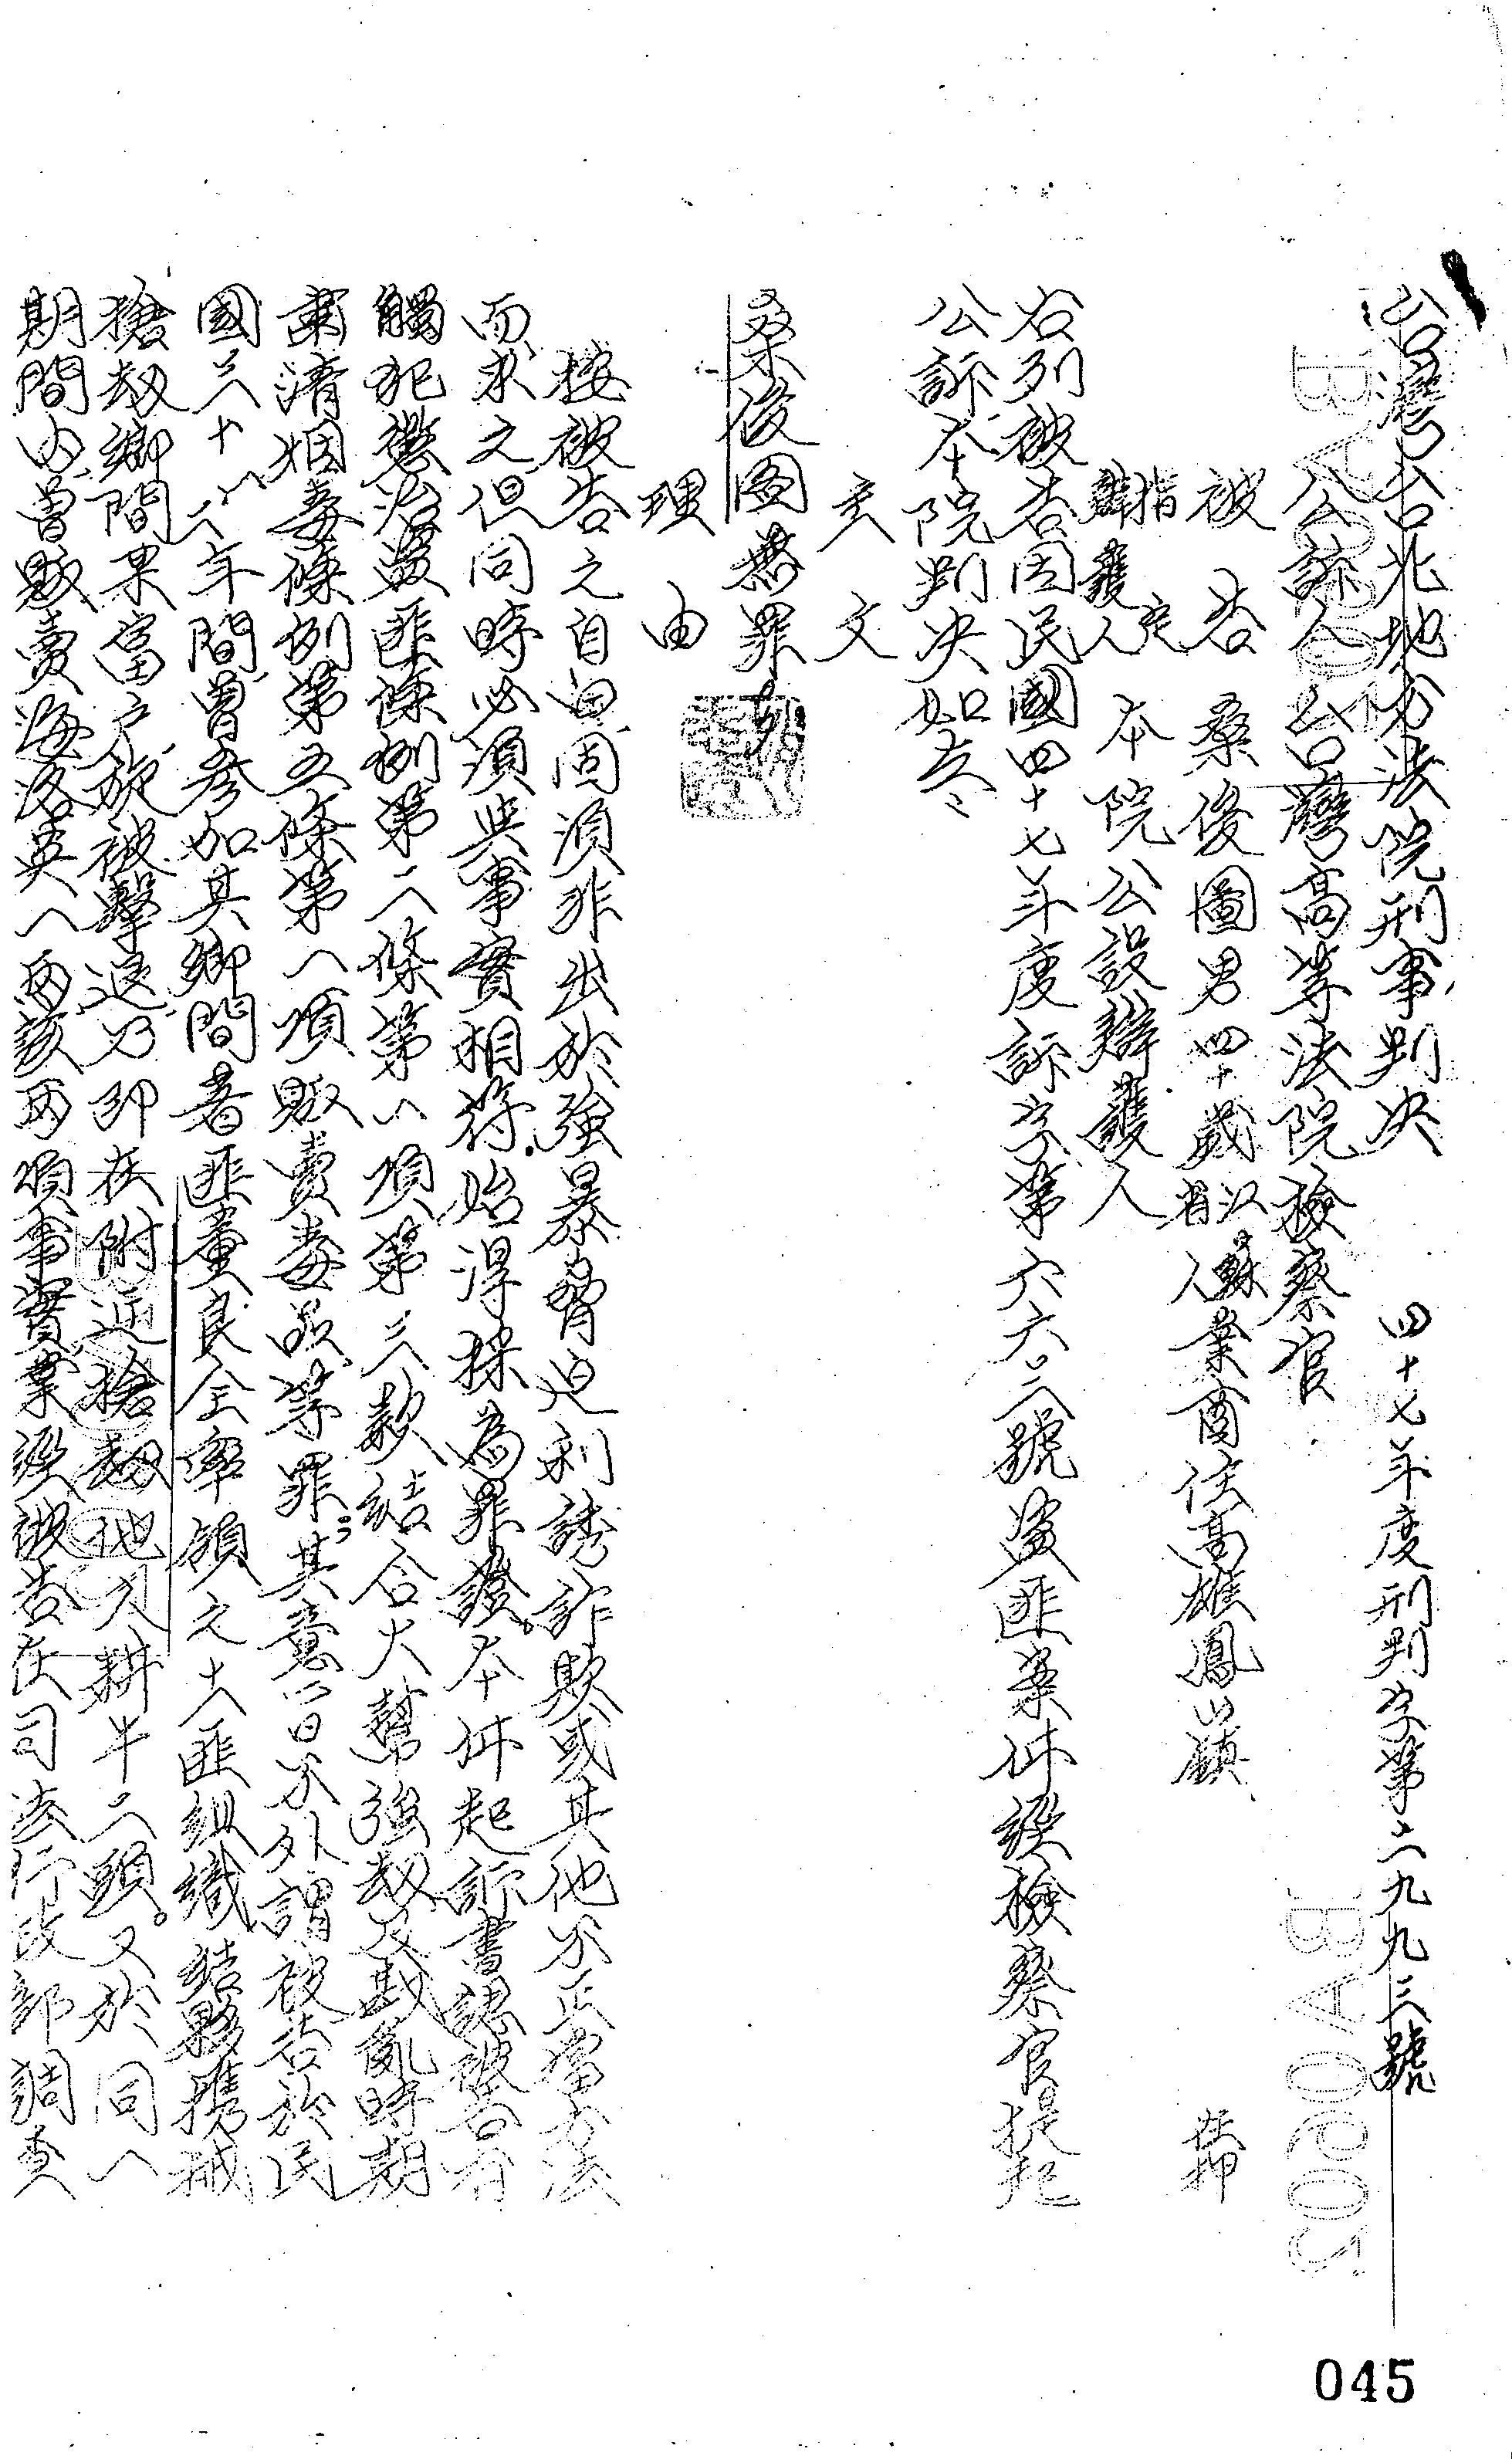 台灣台北地方法院刑事判決　四十七年度刑判字第二九九三號
公訴人　台灣高等法院檢察官
被告　桑俊圖男四十歲江蘇省人業商住高雄鳳山鎮　在押
指定辯護人　本院公設辯護人
右列被告因民國四十七年度訴字第六六三號盜匪案件經檢察官提起
公訴本院判決如左
主文
桑俊图無罪
理由
按被告之自白固須非出於強暴脅迫利誘詐欺或其他不正當方法
而求之但同時必須與事實相符始得採為罪證本件起訴書認被告有
觸犯懲治盜匪條例第二條第一項第三款結合大幫強劫及戡亂時期
肅清烟毒條例第五條第一項販賣毒品等罪其意旨不外謂被告於民
國三十一二年間曾參加其鄉間著匪董良全率領之土匪組織結夥攜械
搶劫鄉間某富戶旋被擊退乃即在附近搶劫他人耕牛二頭。又於同一
期間內曾販賣海洛英一兩該兩項事實業經被告在司法行政部調查
045
BA0602
BA0602